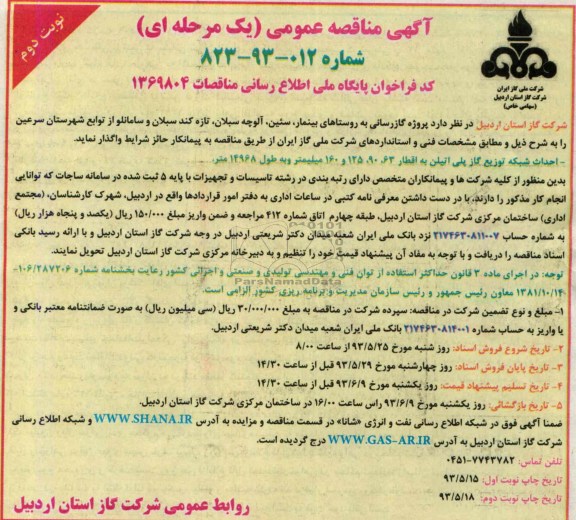 نوبت دوم
آگهی مناقصه عمومی (یک مرحله ای)
شماره ۰۱۲-۹۳-۸۲۳
کد فراخوان پایگاه ملی اطلاع رسانی مناقصات ۱۳۶۹۸۰۴
شرکت ملی گاز ایران
شرکت گاز استان اردبیل
(سهامی خاص)
شرکت گاز استان اردبیل در نظر دارد پروژه گازرسانی به روستاهای بینمار، سئین، آلوچه سبلان، تازه کند سبلان و سامانلو از توابع شهرستان سرعین
را به شرح ذیل و مطابق مشخصات فنی و استانداردهای شرکت ملی گاز ایران از طریق مناقصه به پیمانکار حائز شرایط واگذار نماید.
- احداث شبکه توزیع گاز پلی اتیلن به اقطار ۶۳، ۹۰، ۱۲۵ و ۱۶۰ میلیمتر وبه طول ۱۴۹۶۸ متر.
بدین منظور از کلیه شرکت ها و پیمانکاران متخصص دارای رتبه بندی در رشته تاسیسات و تجهیزات با پایه ۵ ثبت شده در سامانه ساجات که توانایی
انجام کار مذکور را دارند، با در دست داشتن معرفی نامه کتبی در ساعات اداری به دفتر امور قراردادها واقع در اردبیل، شهرک کارشناسان، (مجتمع
اداری) ساختمان مرکزی شرکت گاز استان اردبیل، طبقه چهارم اتاق شماره ۴۱۲ مراجعه و ضمن واریز مبلغ ۱۵۰/۰۰۰ ریال (یکصد و پنجاه هزار ریال)
به شماره حساب ۲۱۷۴۶۳۰۸۱۱۰۰۷ نزد بانک ملی ایران شعبه میدان دکتر شریعتی اردبیل در وجه شرکت گاز استان اردبیل و با ارائه رسید بانکی
اسناد مناقصه را دریافت و با توجه به مفاد آن پیشنهاد قیمت خود را تنظیم و به دبیرخانه مرکزی شرکت گاز استان اردبیل تحویل نمایند.
توجه: در اجرای ماده ۳ قانون حداکثر استفاده از توان فنی و مهندسی تولیدی و صنعتی و اجرائی کشور رعایت بخشنامه شماره ۱۰۶/۲۸۷۲۰۶-
۱۳۸۱/۱۰/۱۴ معاون رئیس جمهور و رئیس سازمان مدیریت و برنامه ریزی کشور الزامی است.
ParsNamadData
۱- مبلغ و نوع تضمین شرکت در مناقصه: سپرده شرکت در مناقصه به مبلغ ۳۰/۰۰۰/۰۰۰ ریال (سی میلیون ریال) به صورت ضمانتنامه معتبر بانکی و
یا واریز به حساب شماره ۲۱۷۴۶۳۰۸۱۴۰۰۱ بانک ملی ایران شعبه میدان دکتر شریعتی اردبیل.
۲- تاریخ شروع فروش اسناد: روز شنبه مورخ ۹۳/۵/۲۵ از ساعت ۸/۰۰
۳- تاریخ پایان فروش اسناد: روز چهارشنبه مورخ ۹۳/۵/۲۹ قبل از ساعت ۱۴/۳۰
۴- تاریخ تسلیم پیشنهاد قیمت: روز یکشنبه مورخ ۹۳/۶/۹ قبل از ساعت ۱۴/۳۰
۵- تاریخ بازگشائی: روز یکشنبه مورخ ۹۳/۶/۹ راس ساعت ۱۶/۰۰ در ساختمان مرکزی شرکت گاز استان اردبیل.
ضمنا آگهی فوق در شبکه اطلاع رسانی نفت و انرژی «شانا» در قسمت مناقصه و مزایده به آدرس WWW.SHANA.IR و شبکه اطلاع رسانی
شرکت گاز استان اردبیل به آدرس WWW.GAS-AR.IR درج گردیده است.
تلفن تماس: ۷۷۴۳۷۸۲-۰۴۵۱
تاریخ چاپ نوبت اول: ۹۳/۵/۱۵
تاریخ چاپ نوبت دوم: ۹۳/۵/۱۸
روابط عمومی شرکت گاز استان اردبیل